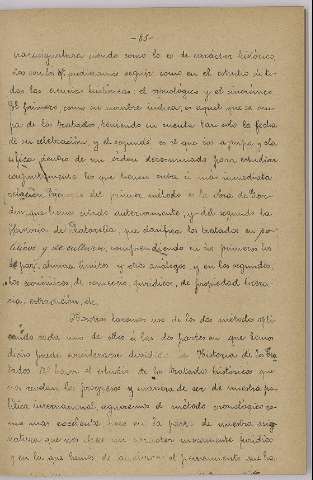 -85-
ra asignatura siendo como lo es de carácter histórico,
dos son los que pudieramos seguir como en el estudio de to-
das las ciencias históricas: el cronológico y el sincrónico
El primero como su nombre indica, es aquel que se ocu-
pa de los tratados, teniendo en cuenta tan solo la fecha
de su celebración y el segundo es el que los agrupa y cla
sifica dentro de un orden determinado para estudiar
conjuntamente los que tienen entre sí mas inmediata
relación. Ejemplo del primer método es la obra de
que hemos citado anteriormente, y del segundo la
Historia de que clasifica los tratados en po-
líticos y de cultura, comprendiendo en los primeros los
de paz, alianza, límites y otros análogos y en los segundos,
los económicos, de comercio, jurídicos, de propiedad litera-
ria, extradición, etc.
Nosotros haremos uso de los dos métodos apli
cando cada uno de ellos á las dos partes en que hemos
dicho puede considerarse dividida la Historia de los Tra
tados. Al hacer el estudio de los tratados históricos que
nos revelan los progresos y manera de ser de nuestra po
lítica internacional, seguiremos el método cronológico co-
mo mas excelente; pero en la parte de nuestra asig
natura que nos ofrece un carácter puramente jurídico
y en la que hemos de analizar el pensamiento que ha